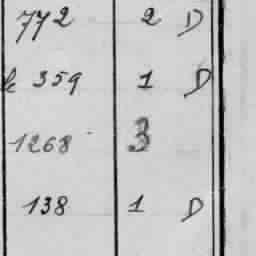 772 2 D
359 1 D
1268 3
138 1 D